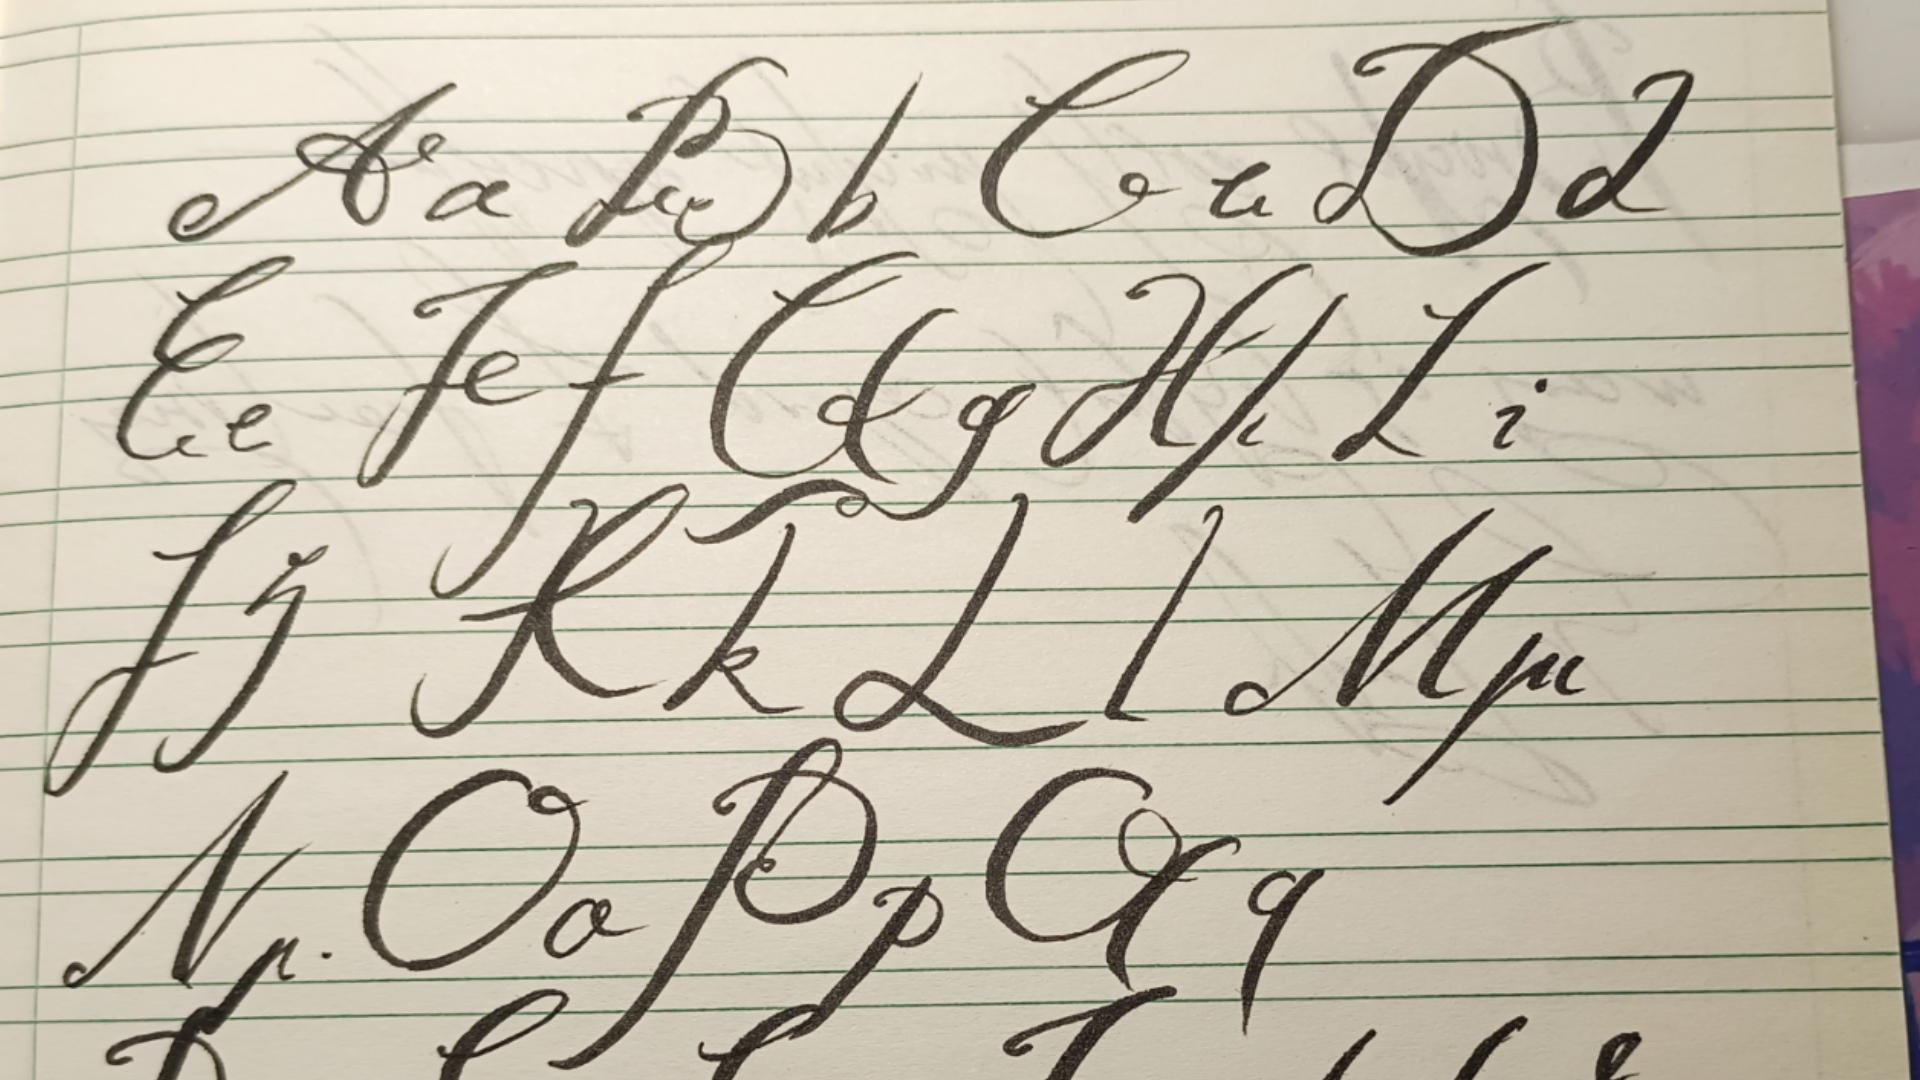 A a B b C c D d
E e F f G g H h I i
J j K k L l M m
N n O o P p Q q